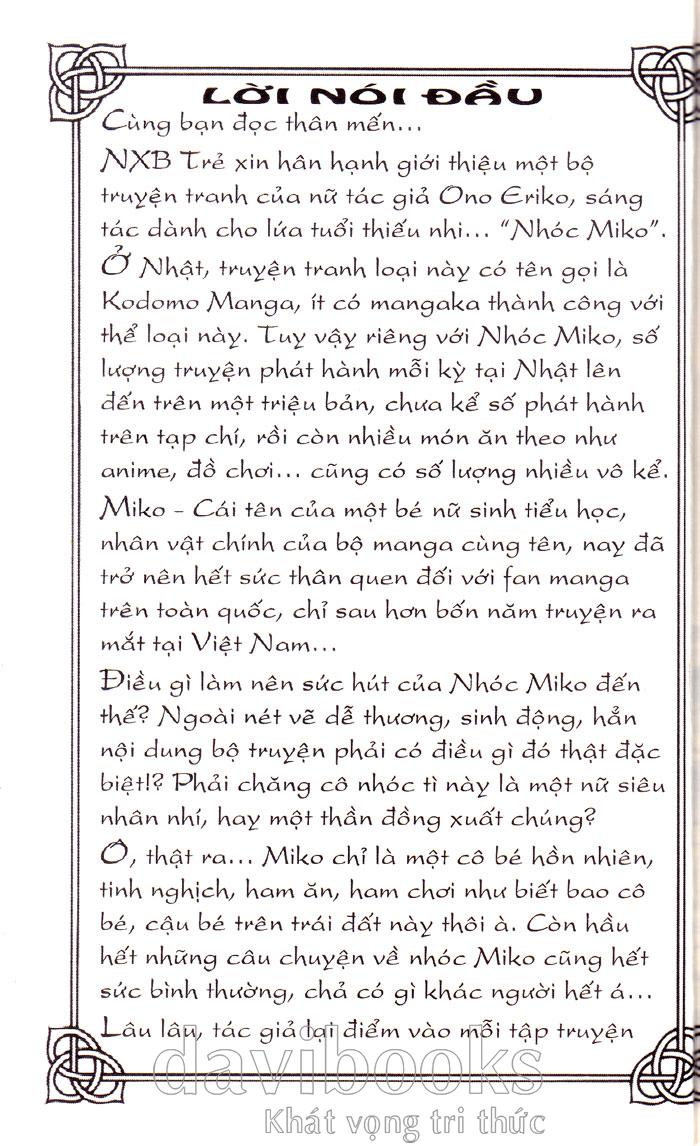 LỜI NÓI ĐẦU
Cùng bạn đọc thân mến...
NXB Trẻ xin hân hạnh giới thiệu một bộ
truyện tranh của nữ tác giả Ono Eriko, sáng
tác dành cho lứa tuổi thiếu nhi... “Nhóc Miko”.
Ở Nhật, truyện tranh loại này có tên gọi là
Kodomo Manga, ít có mangaka thành công với
thể loại này. Tuy vậy riêng với Nhóc Miko, số
lượng truyện phát hành mỗi kỳ tại Nhật lên
đến trên một triệu bản, chưa kể số phát hành
trên tạp chí, rồi còn nhiều món ăn theo như
anime, đồ chơi... cũng có số lượng nhiều vô kể.
Miko - Cái tên của một bé nữ sinh tiểu học,
nhân vật chính của bộ manga cùng tên, nay đã
trở nên hết sức thân quen đối với fan manga
trên toàn quốc, chỉ sau hơn bốn năm truyện ra
mắt tại Việt Nam...
Điều gì làm nên sức hút của Nhóc Miko đến
thế? Ngoài nét vẽ dễ thương, sinh động, hẳn
nội dung bộ truyện phải có điều gì đó thật đặc
biệt!? Phải chăng cô nhóc tì này là một nữ siêu
nhân nhí, hay một thần đồng xuất chúng?
Ô, thật ra... Miko chỉ là một cô bé hồn nhiên,
tinh nghịch, ham ăn, ham chơi như biết bao cô
bé, cậu bé trên trái đất này thôi à. Còn hầu
hết những câu chuyện về nhóc Miko cũng hết
sức bình thường, chả có gì khác người hết á...
Lâu lâu, tác giả lại điểm vào mỗi tập truyện
davibooks
Khát vọng tri thức